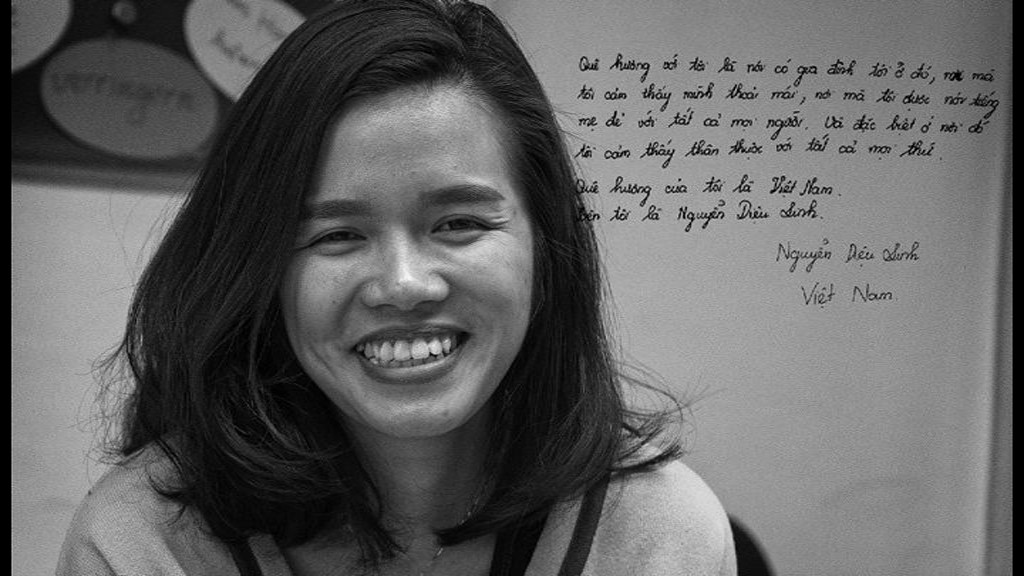 verringern
Quê hương với tôi là nơi có gia đình tôi ở đó, nơi mà
tôi cảm thấy mình thoải mái, nơi mà tôi được nói tiếng
mẹ đẻ với tất cả mọi người. Và đặc biệt ở nơi đó
tôi cảm thấy thân thuộc với tất cả mọi thứ.
Quê hương của tôi là Việt Nam.
Tên tôi là Nguyễn Diệu Linh.
Nguyễn Diệu Linh
Việt Nam.